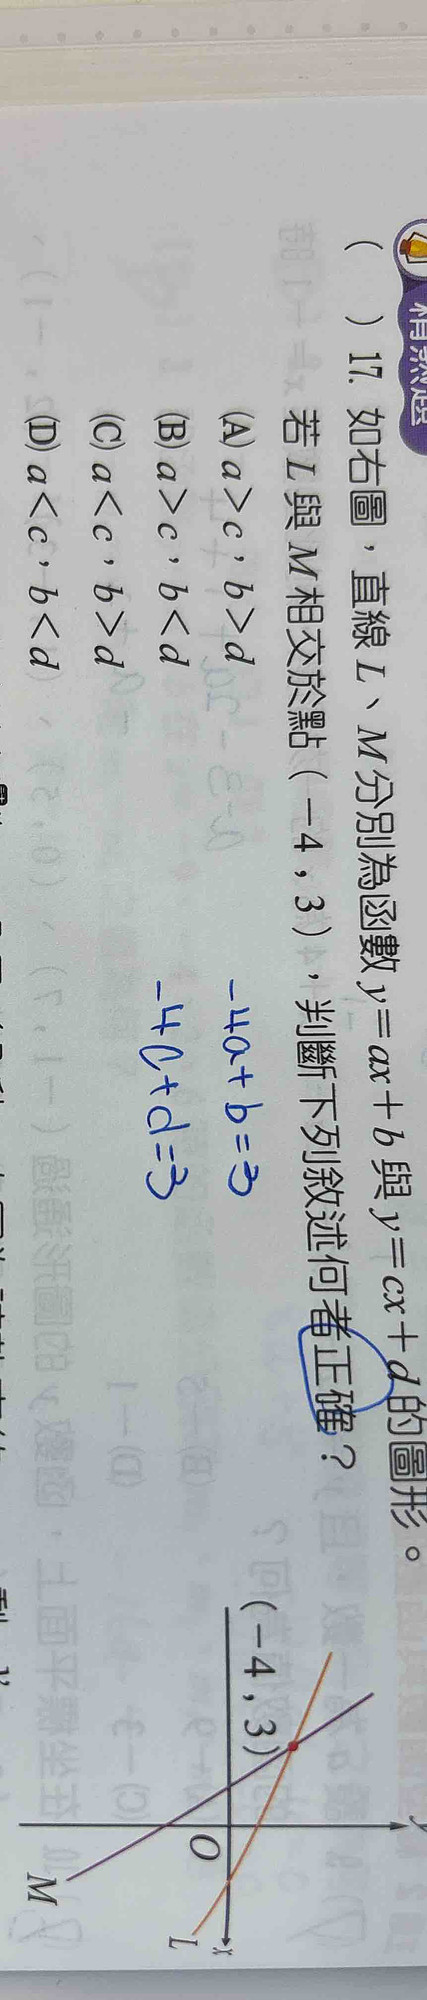 精熟題
(　) 17. 如右圖，直線 L、M 分別為函數 y＝ax＋b 與 y＝cx＋d 的圖形。
若 L 與 M 相交於點（－4，3），判斷下列敘述何者正確？
(A) a＞c，b＞d
(B) a＞c，b＜d
(C) a＜c，b＞d
(D) a＜c，b＜d
-4a+b=3
-4c+d=3
(－4，3)
y
O
x
L
M